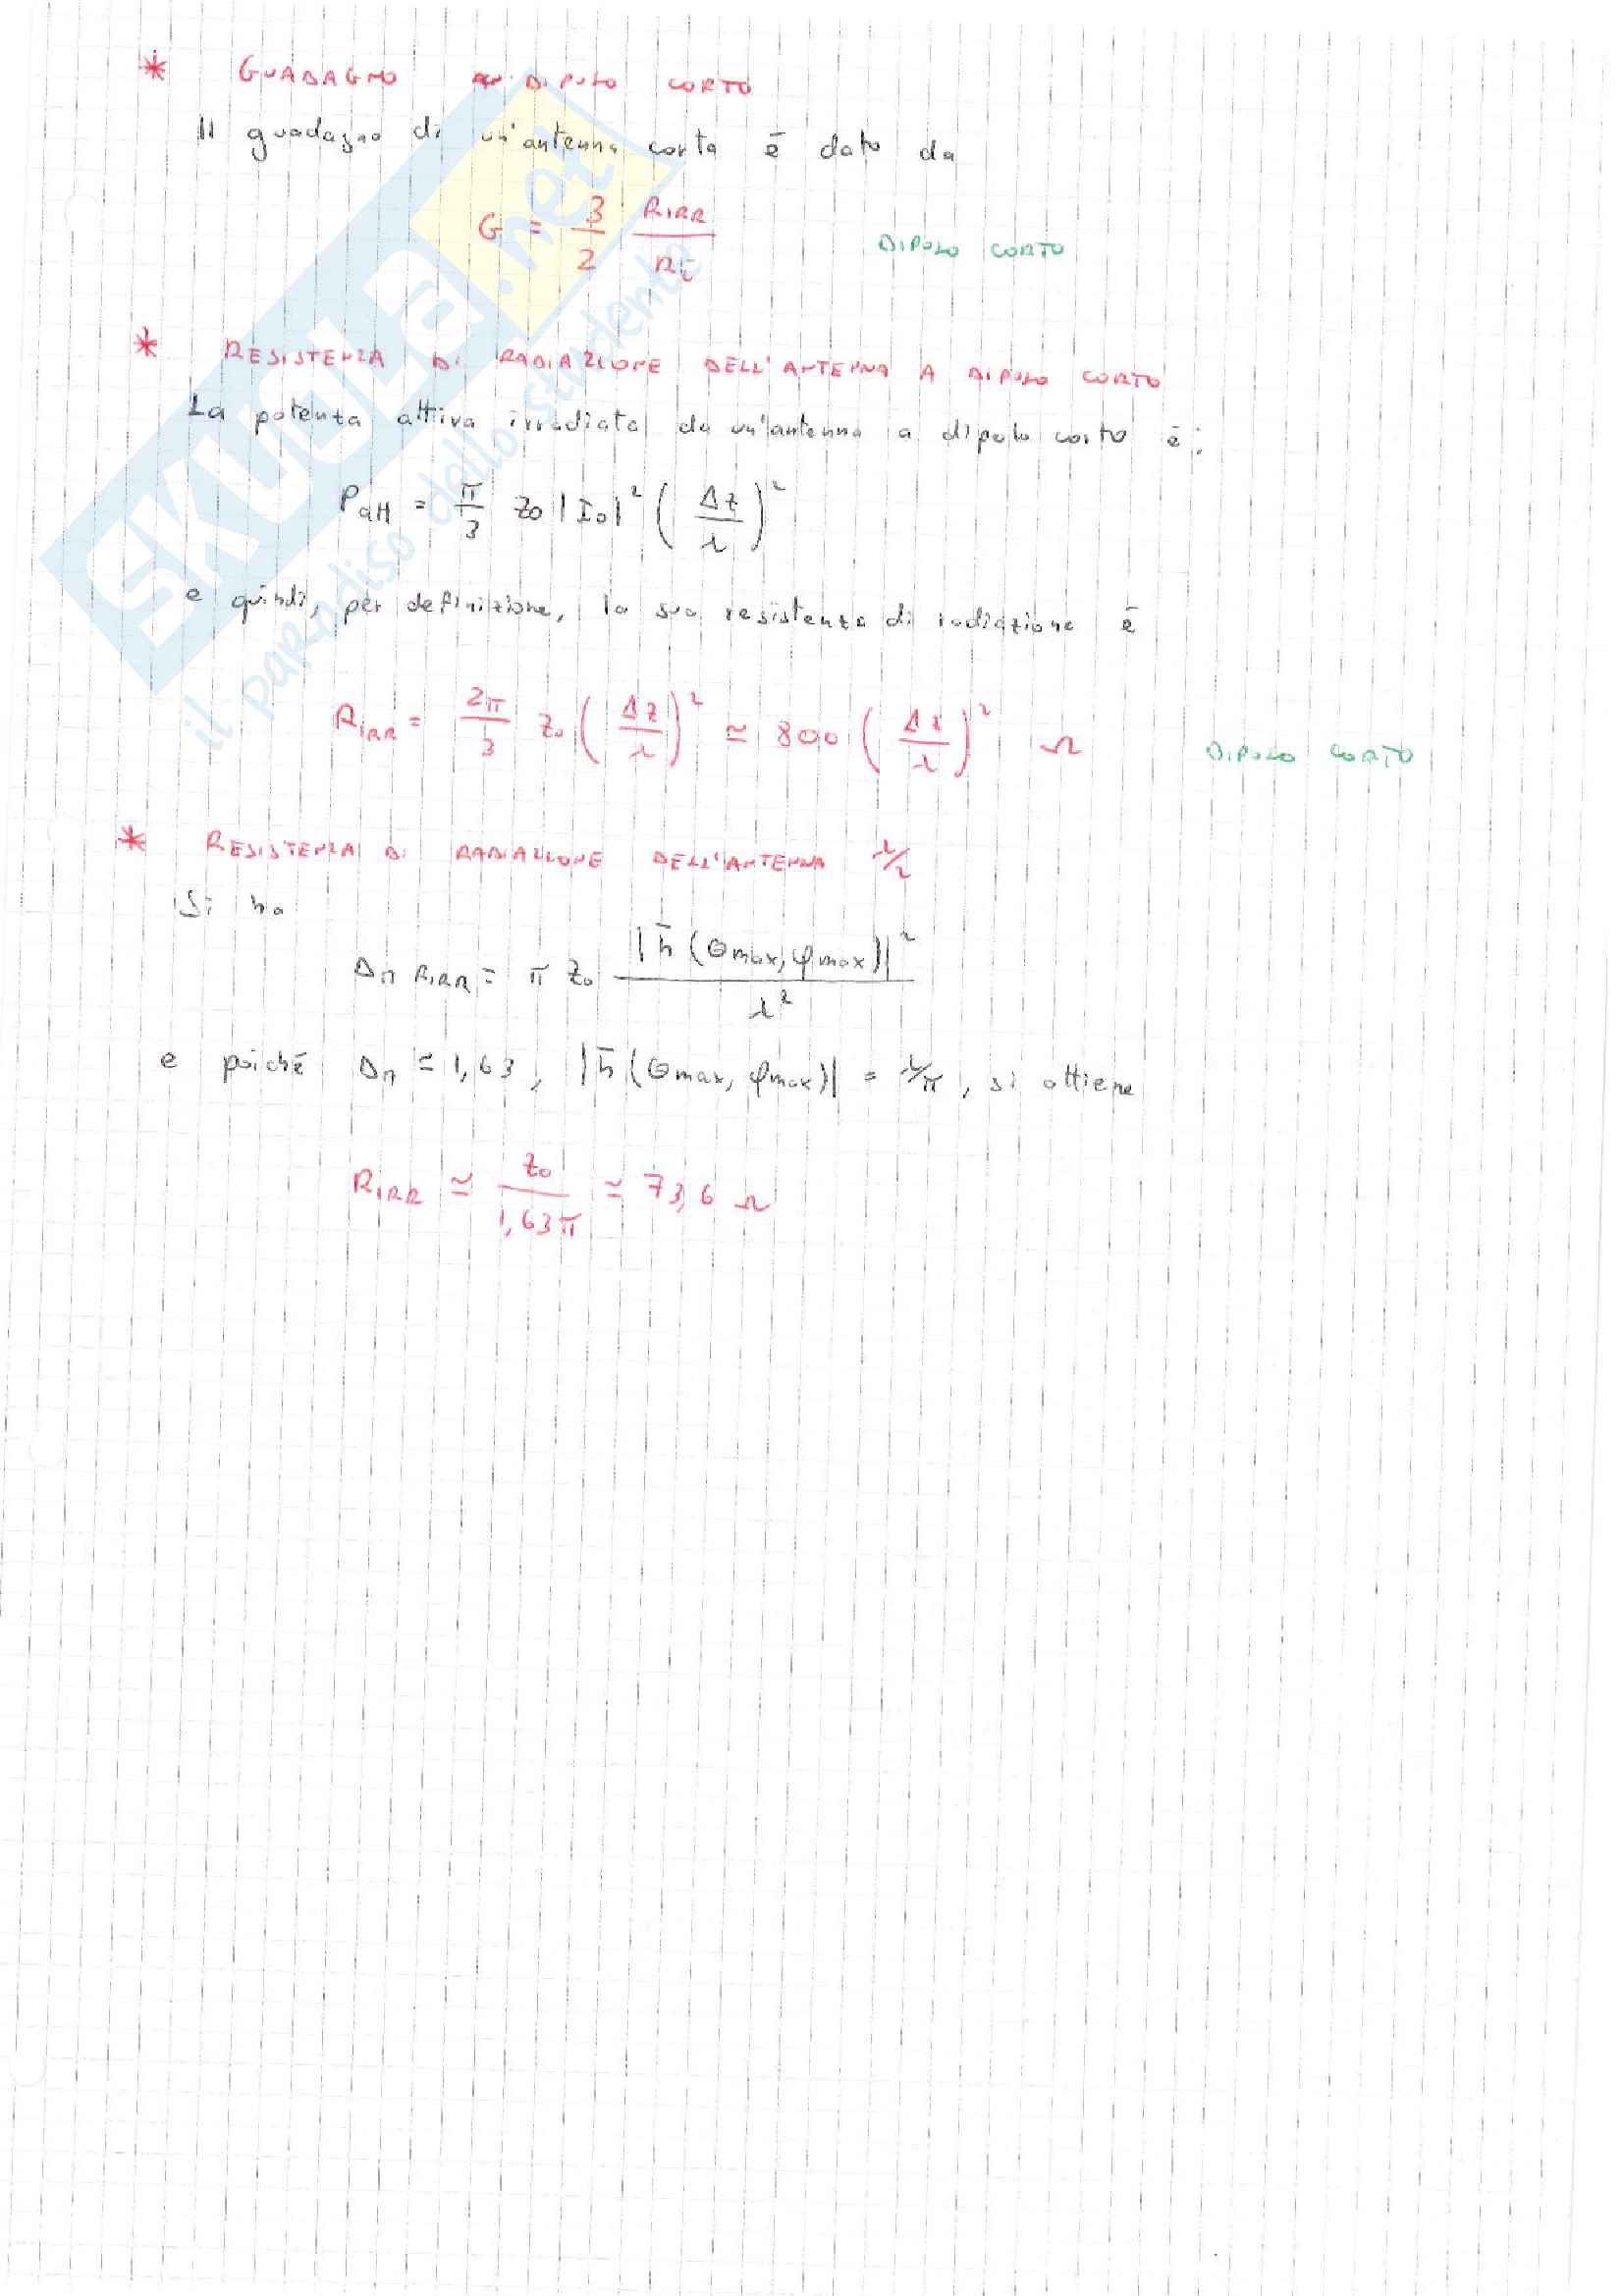 * GUADAGNO DI DIPOLO CORTO
Il guadagno di un'antenna corta è dato da
G = 3/2 RIRR/Ri DIPOLO CORTO
* RESISTENZA DI RADIAZIONE DELL'ANTENNA A DIPOLO CORTO
La potenza attiva irradiata da un'antenna a dipolo corto è:
Patt = π/3 Z0 |I0|² (Δz/λ)²
e quindi, per definizione, la sua resistenza di radiazione è
RIRR = 2π/3 Z0 (Δz/λ)² ≃ 800 (Δz/λ)² Ω DIPOLO CORTO
* RESISTENZA DI RADIAZIONE DELL'ANTENNA λ/2
Si ha
DM RIRR = π Z0 |h̄(θmax, φmax)|²/λ²
e poiché DM ≃ 1,63, |h̄(θmax, φmax)| = λ/π, si ottiene
RIRR ≃ Z0/1,63π ≃ 73,6 Ω
SKUOLA.net
il paradiso dello studente